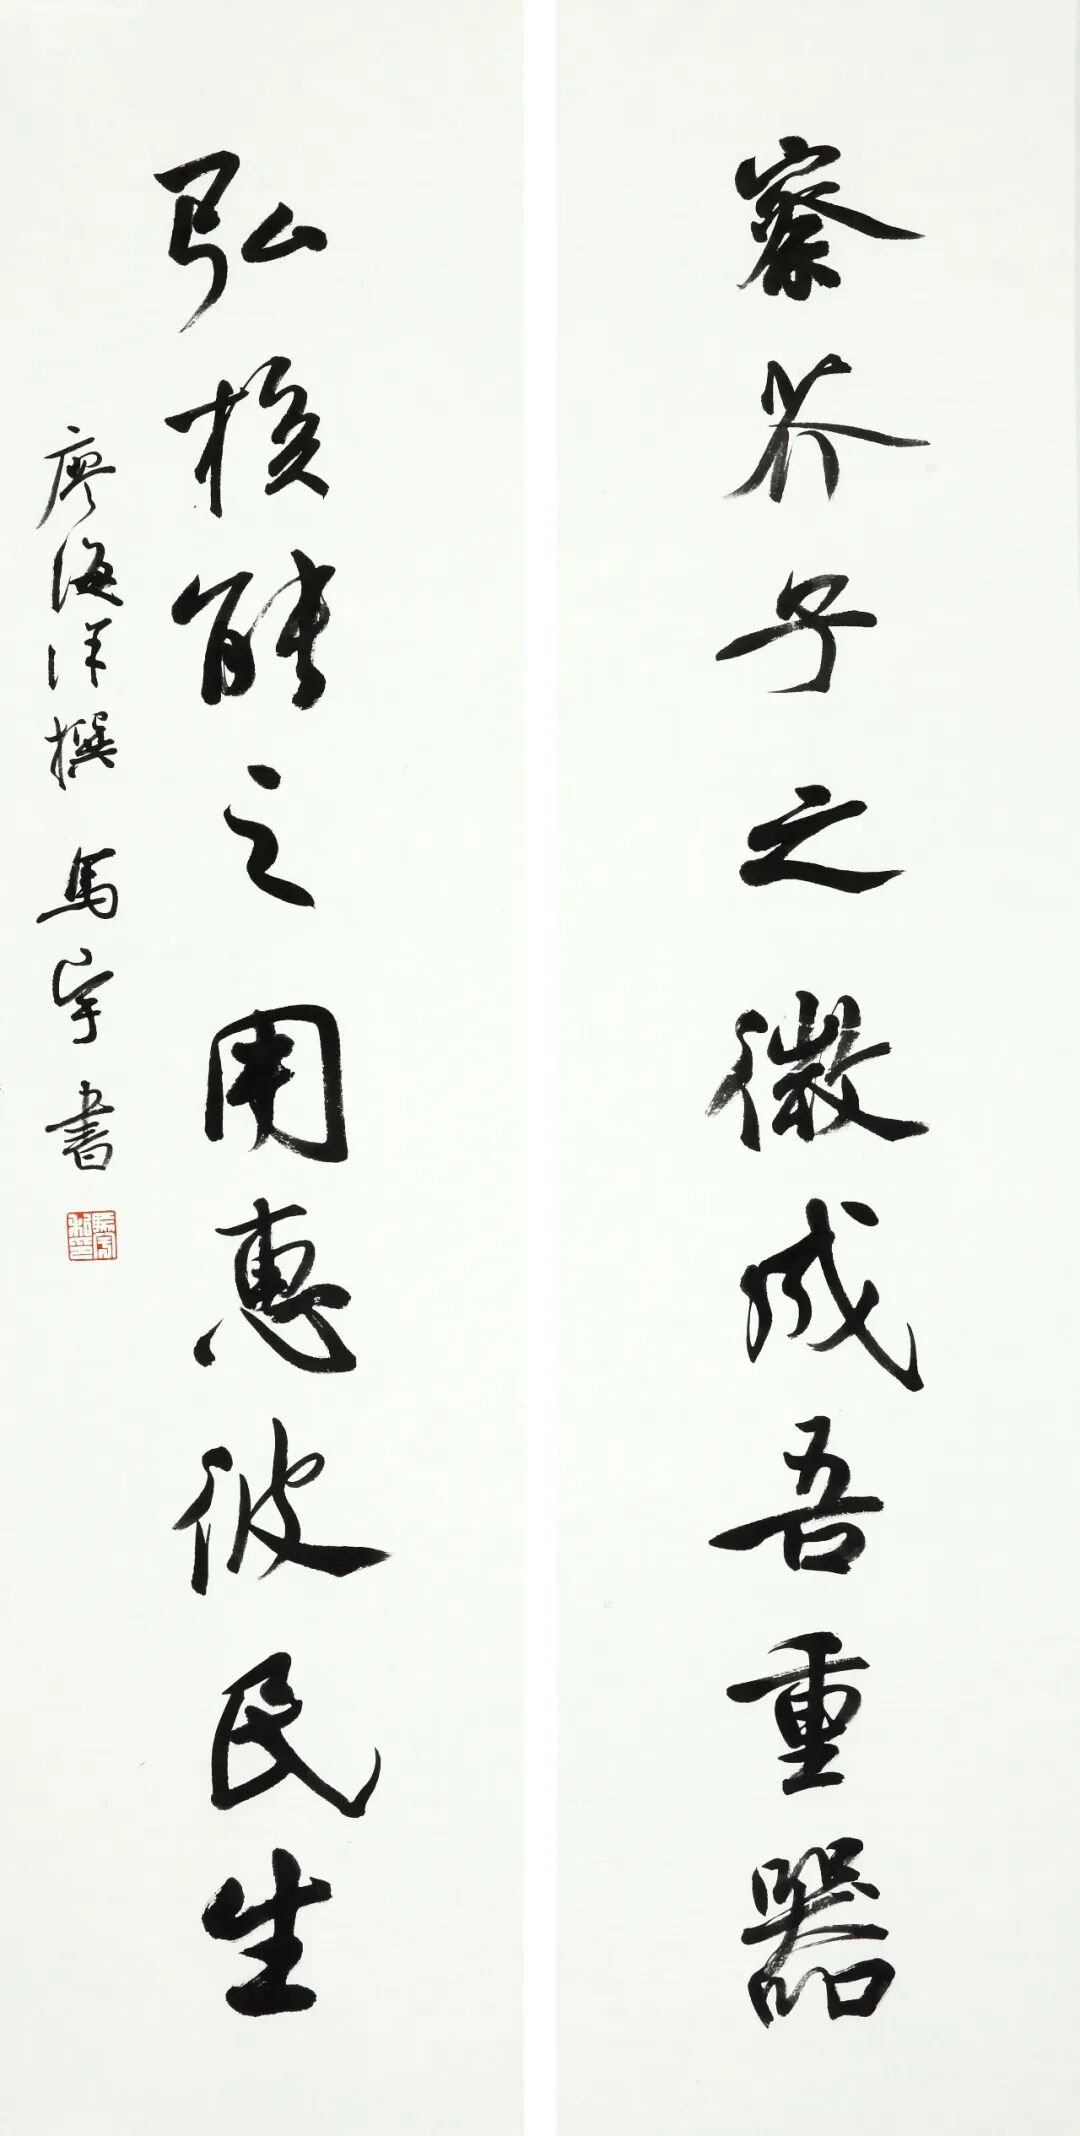 察芥子之微成吾重器
弘核能之用惠彼民生
廖海洋撰 馬宇書